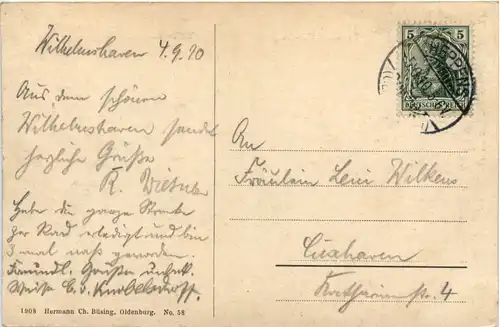 Wilhelmshaven 4.9.10
Aus dem schönen
Wilhelmshaven sendet
herzliche Grüße
R.
Habe die ganze Strecke
per Rad erledigt und bin
3 mal naß geworden.
Freundl. Grüße unbek.
Weise E. v. Knobelsdorff.
1908 Hermann Ch. Büsing, Oldenburg. No. 58
5 5
HEPPENS
DEUTSCHES REICH
An
Fräulein Leni Wilkens
Cuxhaven
4